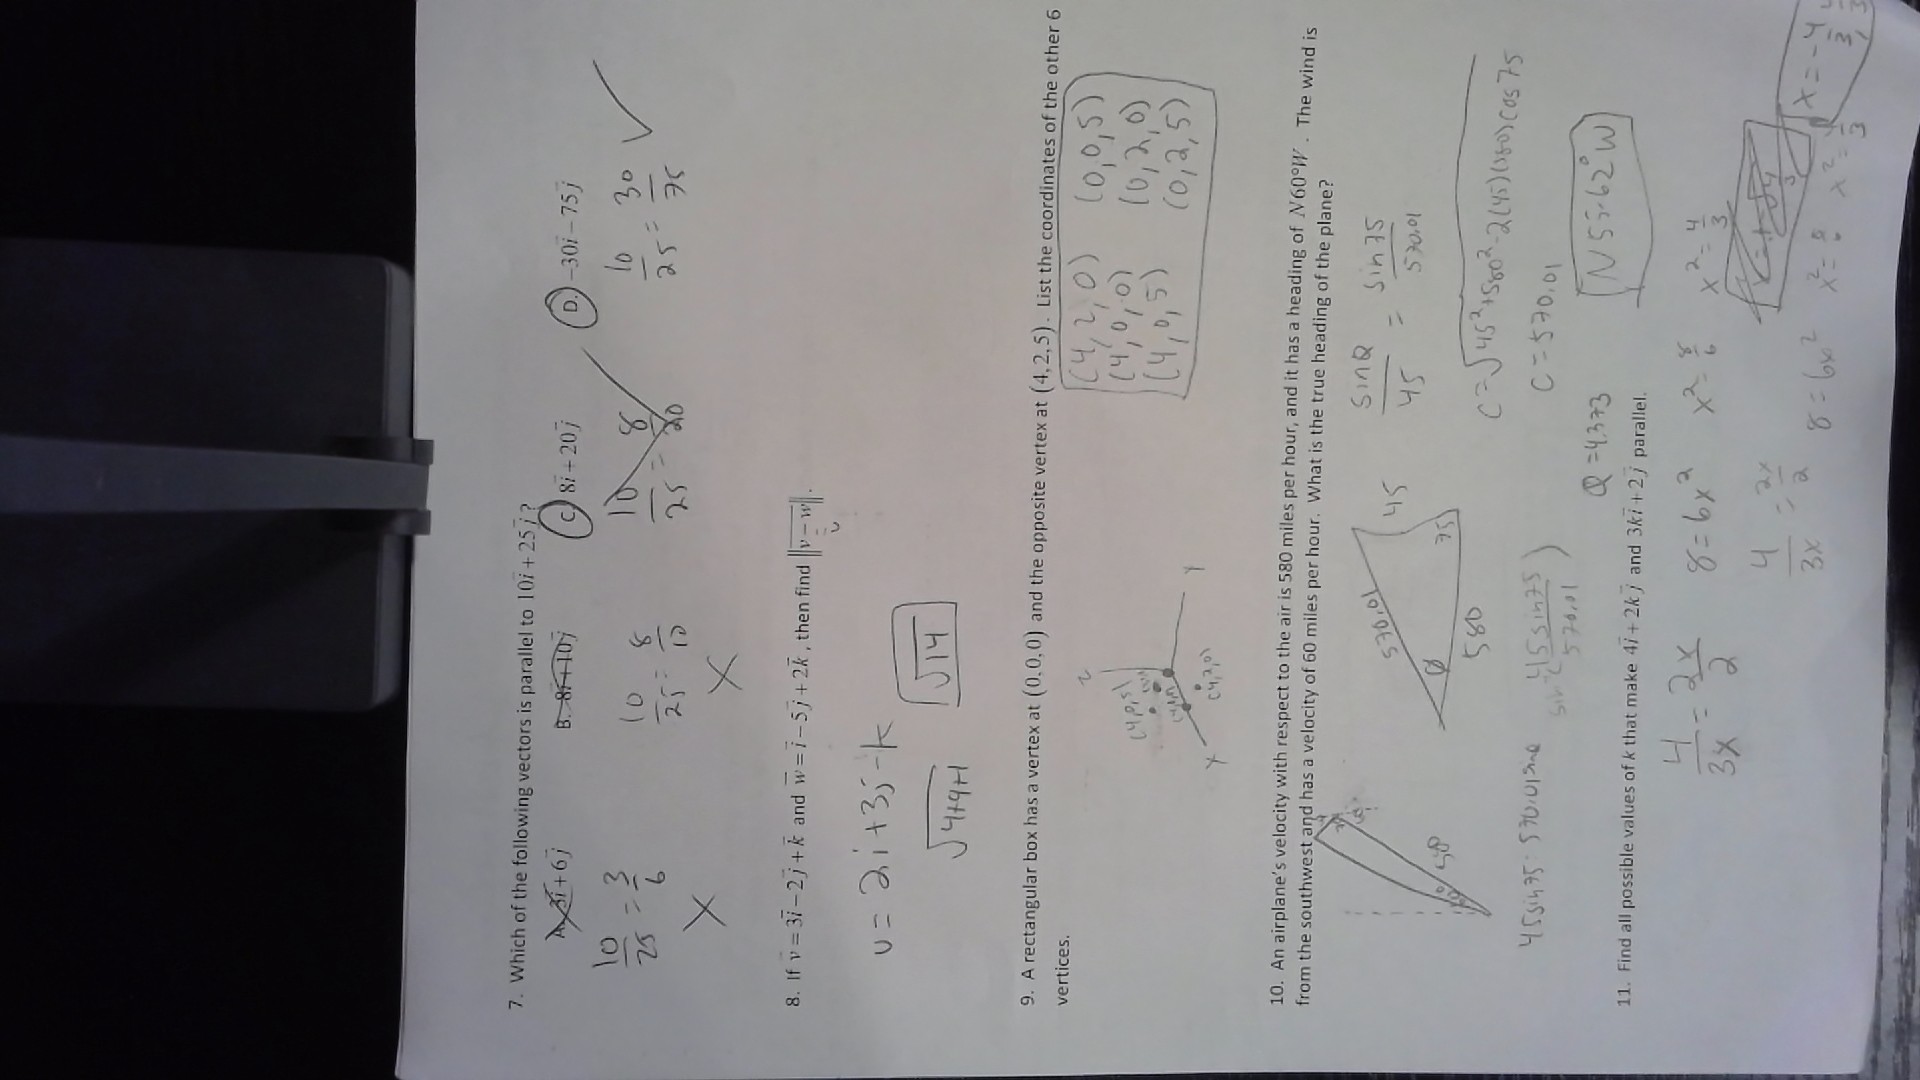 7. Which of the following vectors is parallel to 10i + 25j ?
A. 3i + 6j B. 8i + 10j C. 8i + 20j D. -30i - 75j
10/25 = 3/6 10/25 = 8/10 10/25 = 8/20 10/25 = 30/75 ✓
X X
8. If v = 3i - 2j + k and w = i - 5j + 2k, then find ‖v - w‖.
u
u = 2i + 3j - k
√4+9+1 √14
9. A rectangular box has a vertex at (0,0,0) and the opposite vertex at (4,2,5). List the coordinates of the other 6
vertices.
(4,2,0) (0,0,5)
(4,0,0) (0,2,0)
(4,0,5) (0,2,5)
Z
(4,0,5)
X (4,2,0) Y
10. An airplane's velocity with respect to the air is 580 miles per hour, and it has a heading of N60°W. The wind is
from the southwest and has a velocity of 60 miles per hour. What is the true heading of the plane?
580
570.01 45
75
580
sinQ/45 = sin75/570.01
C = √45²+580²-2(45)(580)cos75
C = 570.01
45sin75 = 570.01sinQ
45sin75/570.01 )
Q = 4.373 N 55.62° W
11. Find all possible values of k that make 4i + 2kj and 3ki + 2j parallel.
4/3x = 2x/2 8 = 6x² x² = 8/6 x² = 4/3
4/3x = 2x/2 8 = 6x² x² = 8/6 x² = 4/3